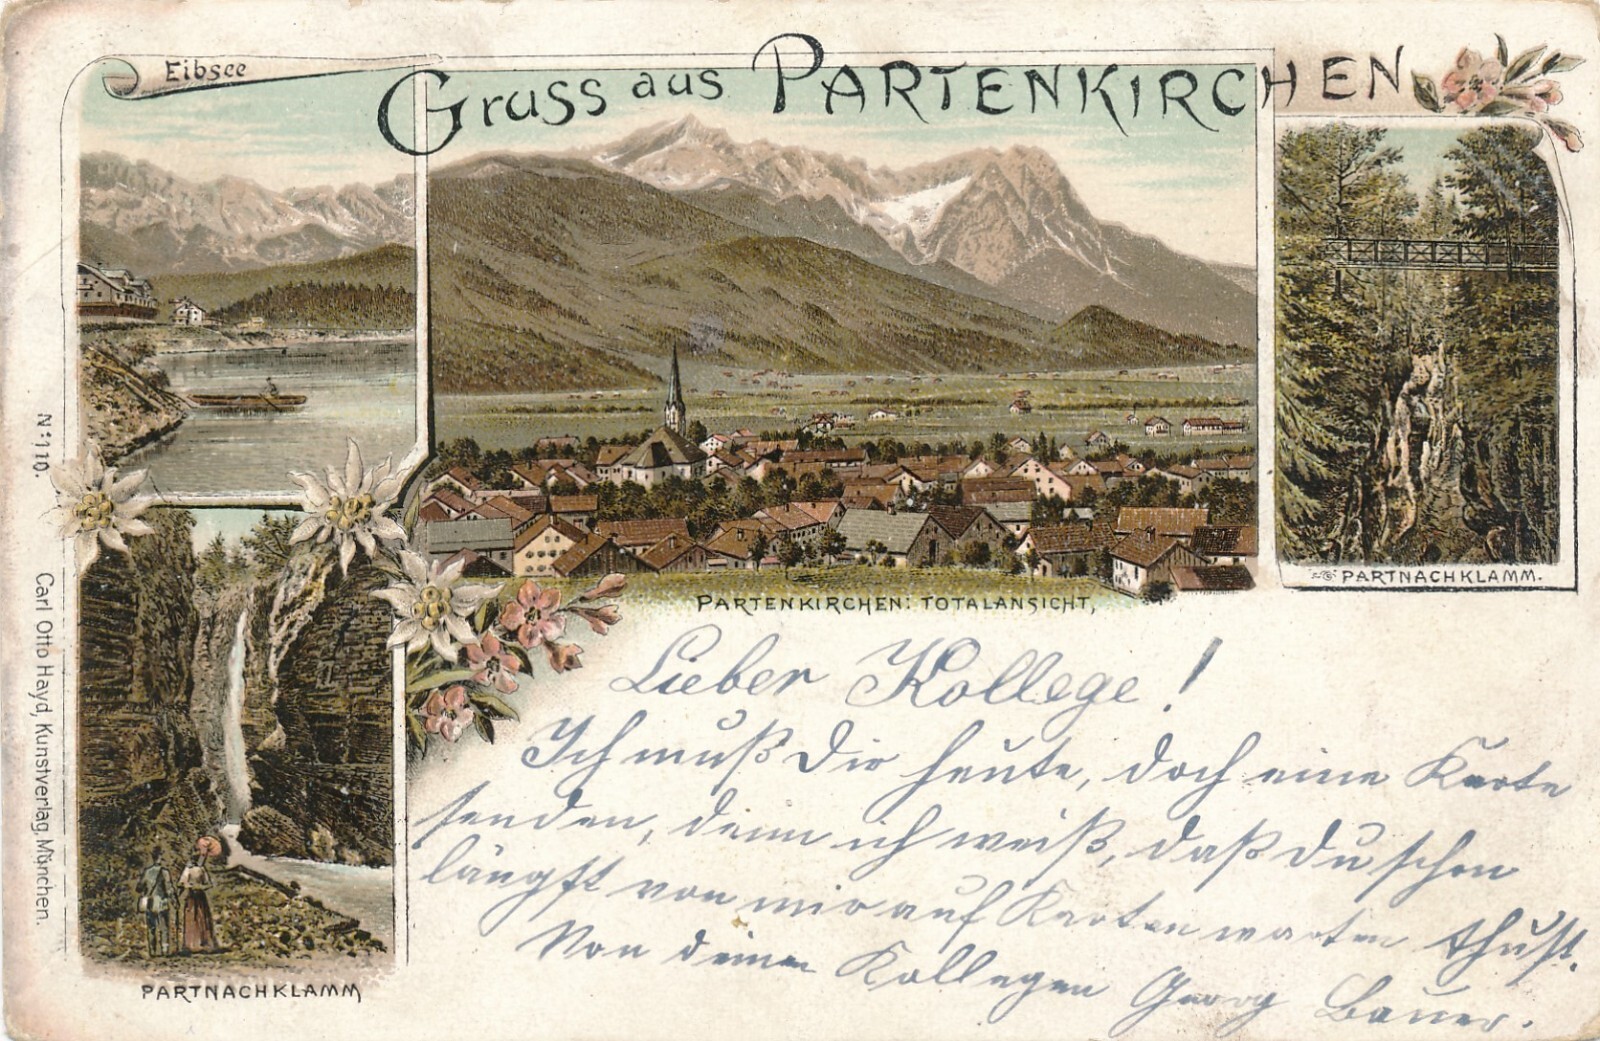 Eibsee
Gruss aus PARTENKIRCHEN
PARTNACHKLAMM.
PARTENKIRCHEN: TOTALANSICHT,
PARTNACHKLAMM
N:110.
Carl Otto Hayd, Kunstverlag, München.
Lieber Kollege!
Ich muß Dir heute, doch eine Karte
senden, denn ich weiß, daß Du schon
längst von mir auf Karten warten thust.
Von deinem Kollegen Georg Bauer.